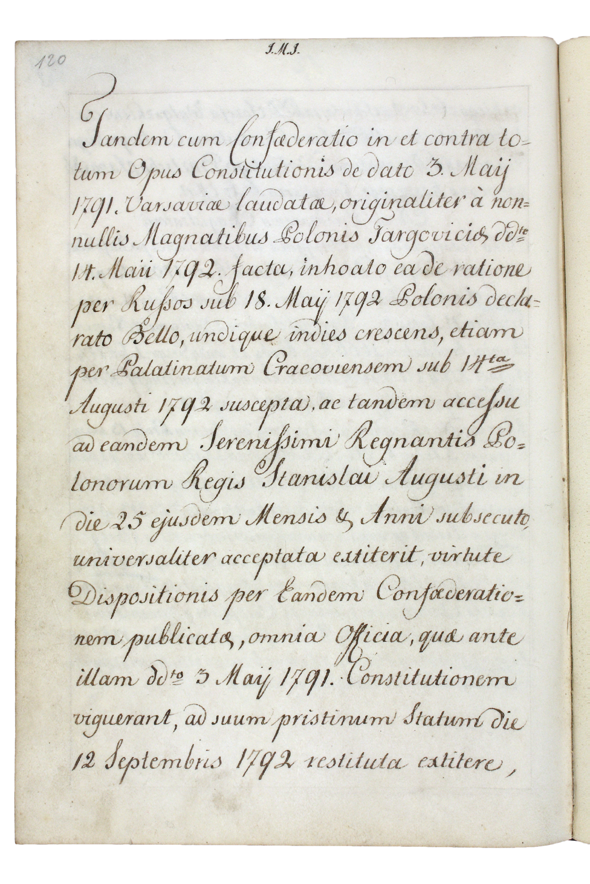 120
J.M.J.
Tandem cum Confæderatio in et contra to=
tum Opus Constitutionis de dato 3. Maij
1791. Varsaviæ laudatæ, originaliter à non=
nullis Magnatibus Polonis Targoviciæ, ddto
14. Maii 1792. facta, inhoato ea de ratione
per Russos sub 18. Maij 1792 Polonis decla=
rato Bello, undique indies crescens, etiam
per Palatinatum Cracoviensem sub 14ta
Augusti 1792 suscepta, ac tandem accessu
ad eandem Serenissimi Regnantis Po=
lonorum Regis Stanislai Augusti in
die 25 ejusdem Mensis & Anni subsecuto,
universaliter acceptata extiterit, virtute
Dispositionis per Eandem Confæderatio=
nem publicatæ, omnia Officia, quæ ante
illam ddto 3 Maij 1791. Constitutionem
viguerant, ad suum pristinum Statum die
12 Septembris 1792 restituta extitere,